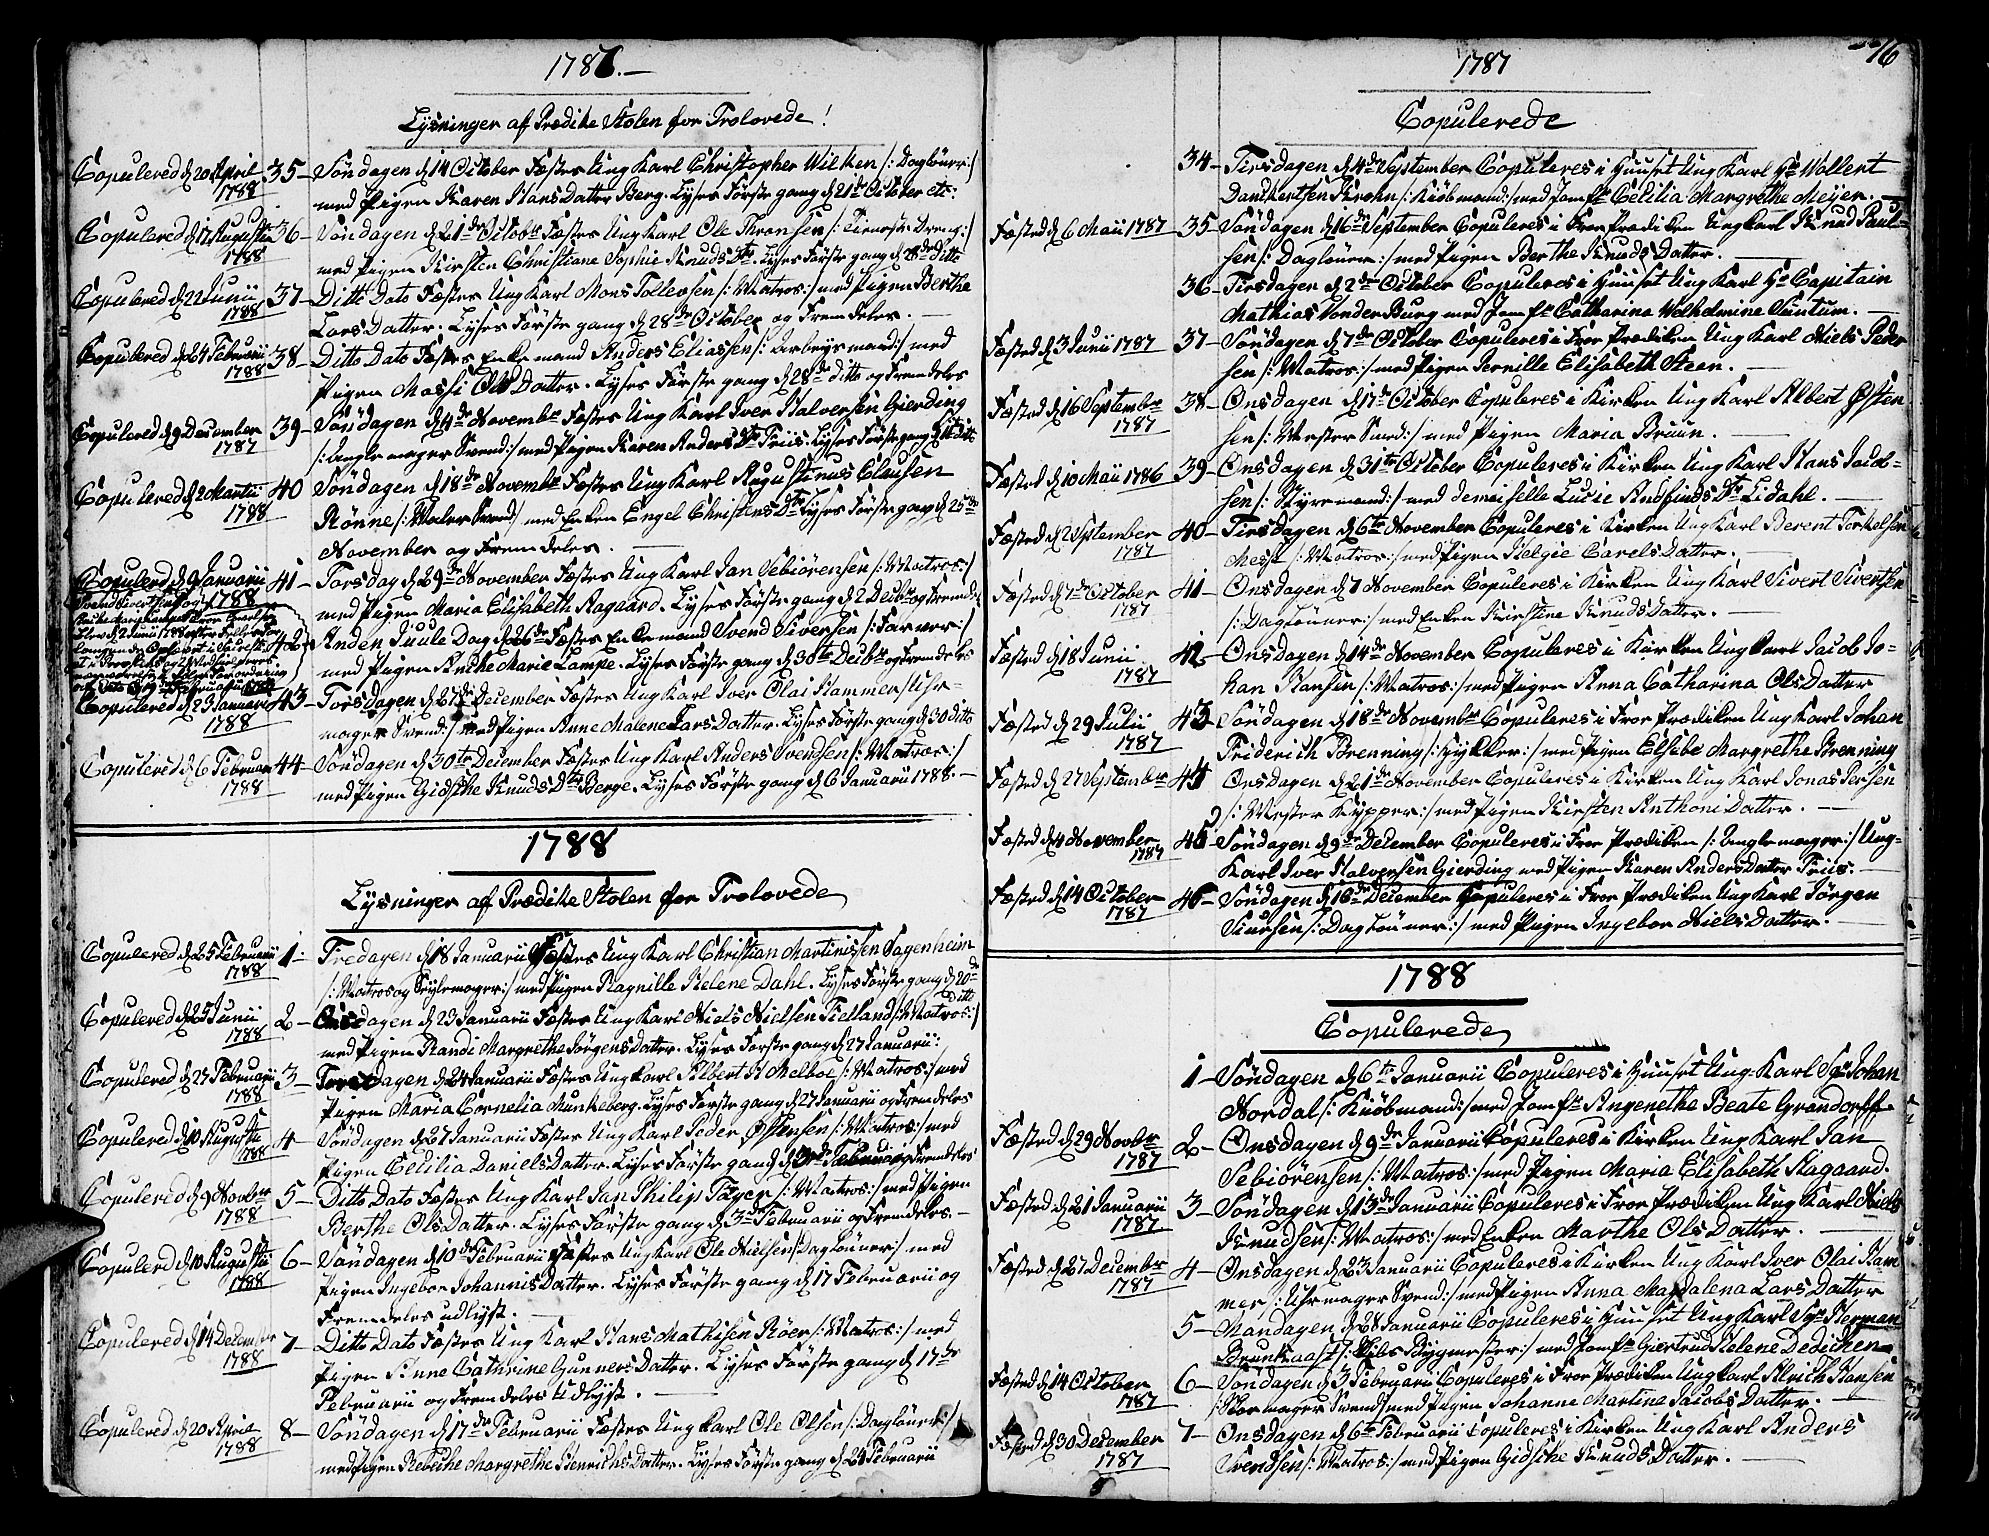 1787.
Lysninger af Prædike Stolen for Trolovede!
Copulered d 20 April 1788
35 - Søndagen d 14 October Fæstes Ung Karl Christopher Wilken /: Dagløner :/
med Pigen Karen Hans Datter Berg. Lyses Første gang d 21de October etc:
Copulered d 17 Augustii 1788
36 - Søndagen d 21de October Fæstes Ung Karl Ole Thronsen /: Tieneste Dreng :/
med Pigen Kirsten Christiane Sophie Knuds Dtr. Lyses Første gang d 28de ditto
Copulered d 22 Junii 1788
37 - Ditto Dato Fæstes Ung Karl Mons Tollevsen /: Matros :/ med Pigen Berthe
Lars Datter. Lyses Første gang d 28de October og Fremdeles.
Copulered d 24 Februarii 1788
38 - Ditto Dato Fæstes Enkemand Anders Eliassen /: Arbeysmand :/ med
Pigen Massi Ols Datter. Lyses Første gang d 28de ditto og Fremdeles
Copulered d 9 December 1787
39 - Søndagen d 4de Novembr Fæstes Ung Karl Iver Halversen Gierding
/: mager Svend :/ med Pigen Karen Anders Dtr Friis. Lyses Første gang d ditto
Copulered d 2 Martii 1788
40 Søndagen d 18de Novembr Fæstes Ung Karl Augustinus Clausen
Rönne /: Maler Svend :/ med Enken Engel Christens Dtr Lyses Første gang d 25de
November og Fremdeles.
Copulered d 9 Januarii 1788
41 - Torsdag d 29de November Fæstes Ung Karl Jan Sebiörensen /: Matros :/
med Pigen Maria Elisabeth Aagaard. Lyses Første gang d 2 Decbr og Fremdel
42 - Anden Juule Dag d 26de Fæstes Enkemand Svend Siversen /: Farver :/
med Pigen Anche Marie Lampe. Lyses Første gang d 30te Decbr og Fremdeles
Copulered d 23 Januarii 1788
43 - Torsdagen d 27de December Fæstes Ung Karl Iver Olai Hammer /: Uhr-
mager Svend :/ med Pigen Anne Malene Lars Datter. Lyses Første gang d 30 ditto
Copulered d 6 Februar 1788
44 - Søndagen d 30te December Fæstes Ung Karl Anders Svendsen /: Matros :/
med Pigen Gidsche Knuds Dtr Berge. Lyses Første gang d 6 Januarii 1788.
1788
Lysninger af Prædike Stolen for Trolovede
Copulered d 25 Februarii 1788
1 - Fredagen d 18 Januarii Fæstes Ung Karl Christian Martinissen Sagenheim
/: Matros og Seylemager :/ med Pigen Ragnille Helene Dahl. Lyses Første gang d 20de ditto
Copulered d 25 Junii 1788
2 - Onsdagen d 23 Januarii Fæstes Ung Karl Niels Nielsen Tielland /: Matros :/
med Pigen Randi Margrethe Jørgens Datter. Lyses Første gang d 27 Januarii:
Copulered d 27 Februarii 1788
3 - Torsdagen d 24 Januarii Fæstes Ung Karl Albert H Melboe /: Matros :/ med
Pigen Maria Cornelia Munkeberg. Lyses Første gang d 27 Januarii og Fremdeles
Copulered d 10 Augustii 1788
4 - Søndagen d 27 Januarii Fæstes Ung Karl Peder Østensen /: Matros :/ med
Pigen Cecilia Daniels Datter. Lyses Første gang d 3de Februarii og Fremdeles
Copulered d 9 Novbr 1788
5 - Ditto Dato Fæstes Ung Karl Jan Philip Fäyen /: Matros :/ med Pigen
Berthe Ols Datter. Lyses Første gang d 3de Februarii og Fremdeles.
Copulered d 10 Augustii 1788
6 - Søndagen d 10de Februarii Fæstes Ung Karl Ole Nielsen /: Dagløner :/ med
Pigen Ingebor Johannis Datter. Lyses Første gang d 17 Februarii og
Fremdeles udlyst.
Copulered d 14 December 1788
7 - Ditto Dato Fæstes Ung Karl Hans Mathisen Röer /: Matros :/ med
Pigen Anne Cathrine Gunners Datter. Lyses Første gang d 17de
Februarii og Fremdeles Udlyst.
Copulered d 20 April 1788
8 - Søndagen d 17de Februarii Fæstes Ung Karl Ole Olsen /: Dagløner :/
med Pigen Rebecke Margrethe Henrichs Datter. Lyses Første gang d 24 Februarii
76
1787
Copulerede
34 - Tirsdagen d 4de September Copuleres i Huuset Ung Karl Hr Wollert
Danckertsen Krohn /: Kiöbmand :/ med Jomfr Cecilia Margrethe Meyer.
Fæsted d 6 Maii 1787
35 Søndagen d 16de September Copuleres i Froe Prædiken Ung Karl Knud Paul-
sen /: Dagløner :/ med Pigen Berthe Knuds Datter.
36 - Tirsdagen d 2de October Copuleres i Huuset Ung Karl Hr Capitain
Mathias Vonder Burg med Jomfr Catharina Wilhelmine Suntum.
Fæsted d 3 Junii 1787
37 - Søndagen d 7de October Copuleres i Froe Prædiken Ung Karl Niels Peder
sen /: Matros :/ med Pigen Pernille Elisabeth Steen.
Fæsted d 16 Septembr 1787
38 - Onsdagen d 17de October Copuleres i Kirken Ung Karl Albert Østen
sen /: Mester Smed :/ med Pigen Maria Bruun.
Fæsted d 10 Maii 1786
39 - Onsdagen d 31te October Copuleres i Kirken Ung Karl Hans Jacob-
sen /: Styrmand :/ med demoiselle Lucie Andfinds Dtr Lidahl.
Fæsted d 2 September 1787
40 - Tirsdagen d 6te November Copuleres i Kirken Ung Karl Berent Torkelsen
Messt /: Matros :/ med Pigen Helgie Carels Datter.
Fæsted d 7de October 1787
41 - Onsdagen d 7 November Copuleres i Kirken Ung Karl Sivert Sivertsen
/: Dagløner :/ med Enken Kirstine Knuds Datter.
Fæsted d 18 Junii 1787
42 - Onsdagen d 14de November Copuleres i Kirken Ung Karl Jacob Jo-
han Hansen /: Matros :/ med Pigen Anna Catharina Ols Datter
Fæsted d 29 Julii 1787
43 - Søndagen d 18de Novembr Copuleres i Froe Prædiken Ung Karl Johan
Friderich Brenning /: Kykker :/ med Pigen Elsebe Margrethe Brenning
Fæsted d 27 Septembr 1787
44 Onsdagen d 21de November Copuleres i Kirken Ung Karl Jonas Persen
/: Mester Kypper :/ med Pigen Kirsten Anthoni Datter.
Fæsted d 4 November 1787
45 Søndagen d 9de December Copuleres i Froe Prædiken /: mager :/ Ung-
Karl Iver Halversen Gierding med Pigen Karen Anders Datter Friis.
Fæsted d 14 October 1787
46 - Søndagen d 16de December Copuleres i Froe Prædiken Ung Karl Jörgen
Siursen /: Dagløner :/ med Pigen Ingebor Niels Datter.
1788
Copulerede
1 - Søndagen d 6te Januarii Copuleres i Huuset Ung Karl Sr Johan
Nordal /: Kiöbmand :/ med Jomfr Angenethe Beate Grandorff
Fæsted d 29 Novbr 1787
2 - Onsdagen d 9de Januarii Copuleres i Kirken Ung Karl Jan
Sebiörensen /: Matros :/ med Pigen Maria Elisabeth Aagaard.
Fæsted d 21 Januarii 1787
3 - Søndagen d 13de Januarii Copuleres i Froe Prædiken Ung Karl Niels
Knudsen /: Matros :/ med Enken Marthe Ols Datter.
Fæsted d 27 Decembr 1787
4 - Onsdagen d 23 Januarii Copuleres i Kirken Ung Karl Iver Olai Ham
mer /: Uhrmager Svend :/ med Pigen Anna Magdalena Lars Datter
5 - Mandagen d 28 Januarii Copuleres i Huuset Ung Karl Sr Herman
Brunkaast /: Skibs Bygmester :/ med Jomfr Giertrud Helene Dedichen
Fæsted d 14 October 1787
6 - Søndagen d 3 Februarii Copuleres i Froe Prædiken Ung Karl Ulrich Hansen
/: Skomager Svend :/ med Pigen Johanne Martina Jacobs Datter.
Fæsted d 30 December 1787
7 - Onsdagen d 6te Februarii Copuleres i Kirken Ung Karl Anders
Svendsen /: Matros :/ med Pigen Gidsche Knuds Datter.